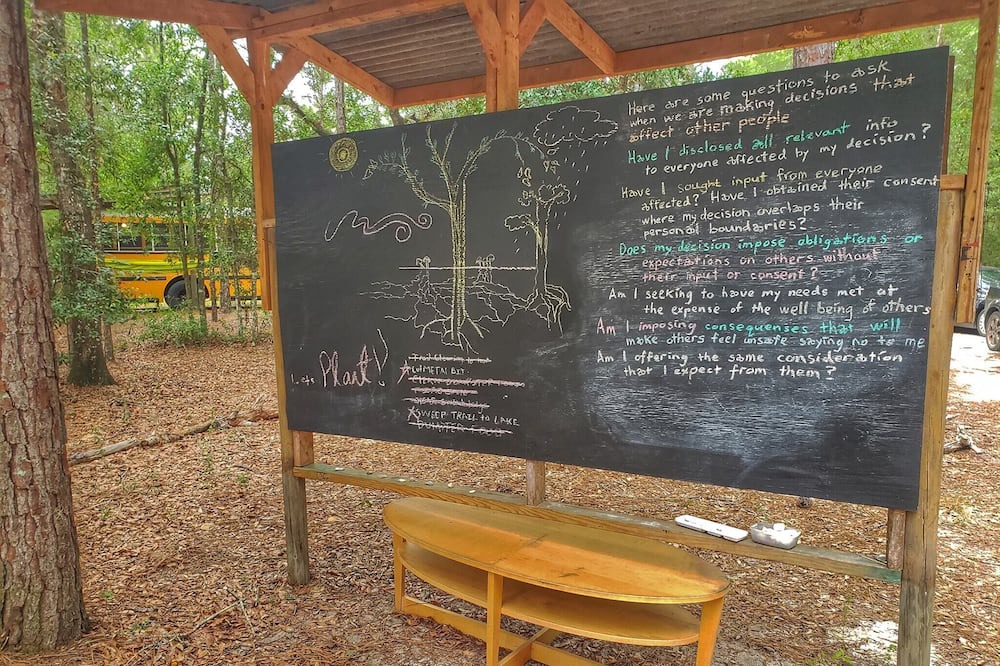 Let's Plant!
CW/METAL BIT.
SWEEP TRAIL to LAKE
Here are some questions to ask
when we are making decisions that
affect other people
Have I disclosed all relevant info
to everyone affected by my decision?
Have I sought input from everyone
affected? Have I obtained their consent
where my decision overlaps their
personal boundaries?
Does my decision impose obligations or
expectations on others without
their input or consent?
Am I seeking to have my needs met at
the expense of the well being of others
Am I imposing consequences that will
make others feel unsafe saying no to me
Am I offering the same consideration
that I expect from them?